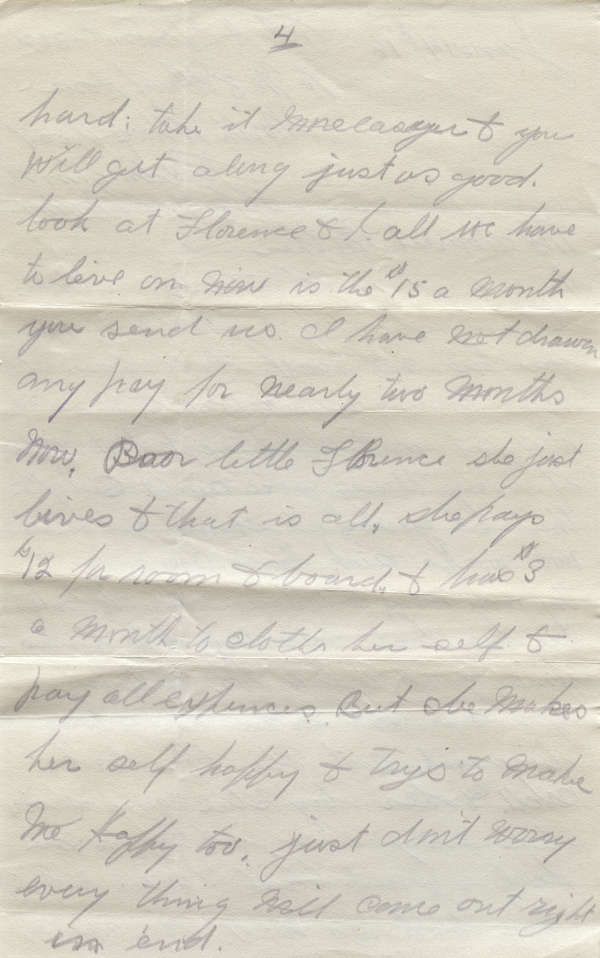 4
hard; take it more easyer & you
will get along just as good.
look at Florence & I. all we have
to live on now is the $15 a month
you send us. I have not drawn
any pay for nearly two months
now. Poor little Florence she just
lives & that is all, she pays
$12 for room & board, & has $3
a month to cloths her self &
pay all expences. But she makes
her self happy & trys to make
me happy too, just don't worry
every thing will come out right
in end.